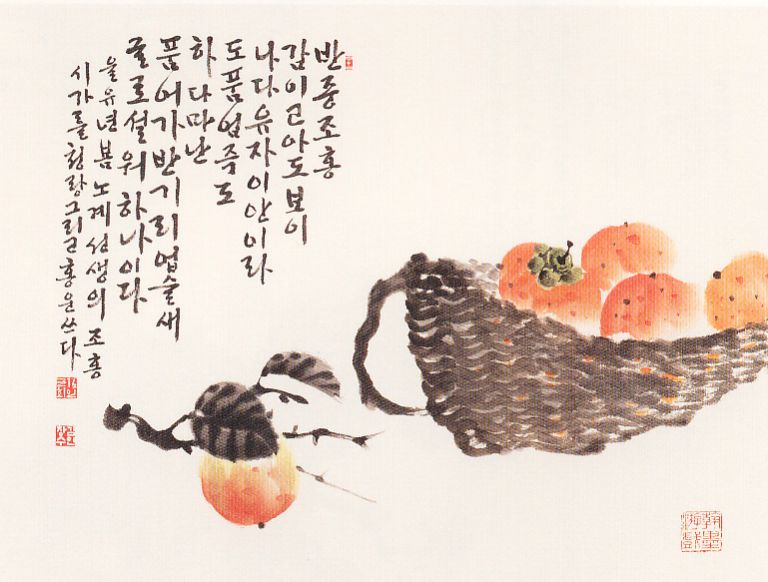 반중조홍
감이고아도보이
나다유자이안이라
도품엄즉도
하다마난
품어가반기리업슬새
글로설워하나이다
을유년봄노계선생의조홍
시가를청랑그리고홍운쓰다